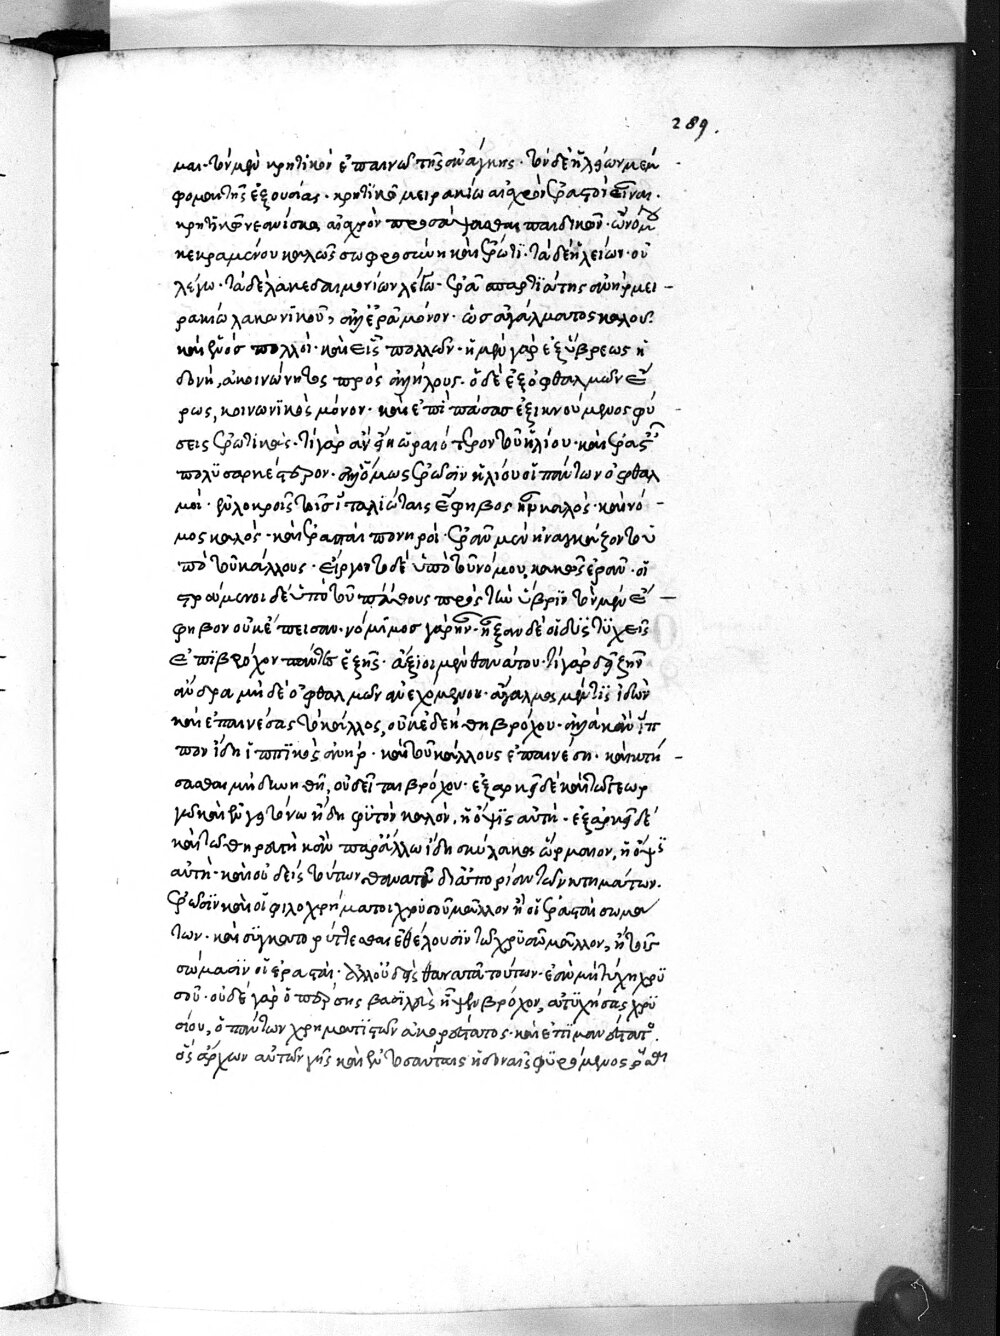 μαι· τὸν μὲν κρητικὸν ἐπαινῶ τῆς ἀνάγκης· τὸν δὲ ἠλεῖον μέμ
φομαι τῆς ἐξουσίας· κρητικῶ μειρακίω αἰσχρὸν ἐραστοὶ εἶναι·
κρητικῶ νεανίσκω αἰσχρὸν προσάψασθαι παιδικῶν· ὢ νόμου
κεκραμένου καλῶς σωφροσύνη καὶ ἔρωτι· τὰ δὲ ἠλείων οὐ
λέγω· τὰ δὲ λακεδαιμονίων λέγω· ἐρᾶ σπαρτιάτης ἀνὴρ μει
ρακίω λακωνικοῦ, ἀλλ' ἐρᾶ μόνον· ὡς ἀγάλματος καλοῦ·
καὶ ἑνὸς πολλοὶ· καὶ εἷς πολλῶν· ἡ μὲν γὰρ ἐξ ὕβρεως ἡ
δονὴ, ἀκοινώνητος πρὸς ἀλλήλους· ὁ δὲ ἐξ ὀφθαλμῶν ἔ
ρως, κοινωνικὸς μόνον· καὶ ἐπὶ πάσας ἐξικνούμενος φύ
σεις ἐρωτικάς· τί γὰρ ἂν εἴη ὡραιότερον τοῦ ἡλίου· καὶ
πολυσαρκέστερον· ἀλλ' ὅμως ἐρῶσιν ἡλίου οἱ πάντων ὀφθαλ
μοί· ἐν λοκροῖς τοῖς ἰταλιώταις ἔφηβος ἦν καλὸς· καὶ νό
μος καλὸς· καὶ ἐρασταὶ πονηροὶ· ἐρᾶν μὲν ἠναγκάζοντο ὑ
πὸ τοῦ κάλλους· εἴργοντο δὲ ὑπὸ τοῦ νόμου, κακῶς ἐρᾶν· οἰ
στρούμενοι δὲ ὑπὸ τοῦ πάθους πρὸς τὴν ὕβριν τὸν μὲν ἔ
φηβον οὐκ ἔπεισαν· νόμιμος γὰρ ἦν· ἦξαν δὲ οἱ δυστυχεῖς
ἐπὶ βρόχον πάντες ἑξῆς· ἄξιοι μὲν θανάτου· τί γὰρ δεῖ ζῆν
ἄνδρα μηδὲ ὀφθαλμῶν ἀνεχόμενον· ἄγαλμα μέν τις ἰδὼν
καὶ ἐπαινέσας τὸ κάλλος, οὐκ ἐδεήθη βρόχου· ἀλλὰ κἂν ἵπ
πον ἴδη ἱππικὸς ἀνὴρ· καὶ τοῦ κάλλους ἐπαινέση· καὶ κτή
σασθαι μὴ δυνηθῆ, οὐ δεῖται βρόχου· ἐξαρκεῖ δὲ καὶ τῶ γεωρ
γῶ κἂν ἐν γειτόνων ἴδη φυτὸν καλὸν, ἡ ὄψις αὐτὴ· ἐξαρκεῖ δὲ
καὶ τῶ θηρευτῆ κἂν παρ' ἄλλω ἴδη σκύλακα ὡραῖον, ἡ ὄψις
αὐτὴ· καὶ οὐδεὶς τούτων θανατᾶ δι' ἀπορίαν τῶν κτημάτων.
ἐρῶσιν καὶ οἱ φιλοχρήματοι χρυσοῦ μᾶλλον ἢ οἱ ἐρασταὶ σωμά
των· καὶ συγκατορύττεσθαι ἐθέλουσιν τῶ χρυσῶ μᾶλλον, ἢ τοῖς
σώμασιν οἱ ἐρασταί· ἀλλ' οὐδεὶς θανατᾶ τούτων· ἐὰν μὴ τύχη χρυ
σοῦ· οὐδὲ γὰρ ὁ πέρσης βασιλεὺς ἧψεν βρόχον, ἀτυχήσας χρυ
σίου, ὁ πάντων χρηματιστῶν ἀκορέστατος· καὶ ἐπιμανέστατος.
ὃς ἄρχων αὐτῶν γῆς καὶ ἐν τοσαύταις ἡδοναῖς φυρόμενος